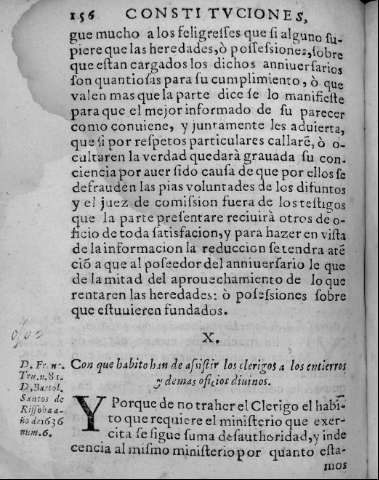 156 CONSTITVCIONES,
gue mucho a los feligresses que si alguno su-
piere que las heredades, ò possessiones, sobre
que estan cargados los dichos anniuersarios
son quantiosas para su cumplimiento, ò que
valen mas que la parte dice se lo manifieste
para que el mejor informado de su parecer
como conuiene, y juntamente les aduierta,
que si por respetos particulares callarẽ, ò o-
cultaren la verdad quedarà grauada su con-
ciencia por auer sido causa de que por ellos se
defrauden las pias voluntades de los difuntos
y el juez de comission fuera de los testigos
que la parte presentare reciuirà otros de o-
ficio de toda satisfacion, y para hazer en vista
de la informacion la reduccion se tendra atẽ
ciõ a que al poseedor del anniuersario le que
de la mitad del aprouechamiento de lo que
rentaren las heredades: ò posessiones sobre
que estuuieren fundados.
X.
Con que habito han de assistir los clerigos a los entierros
y demas oficios diuinos.
D. Fr. Ant.
D. Bartol.
Santos de
Rissoba a-
ño de 1636
num. 6.
Y Porque de no traher el Clerigo el habi-
to que requiere el ministerio que exer-
cita se sigue suma desauthoridad, y inde
cencia al mismo ministerio por quanto esta-
mos